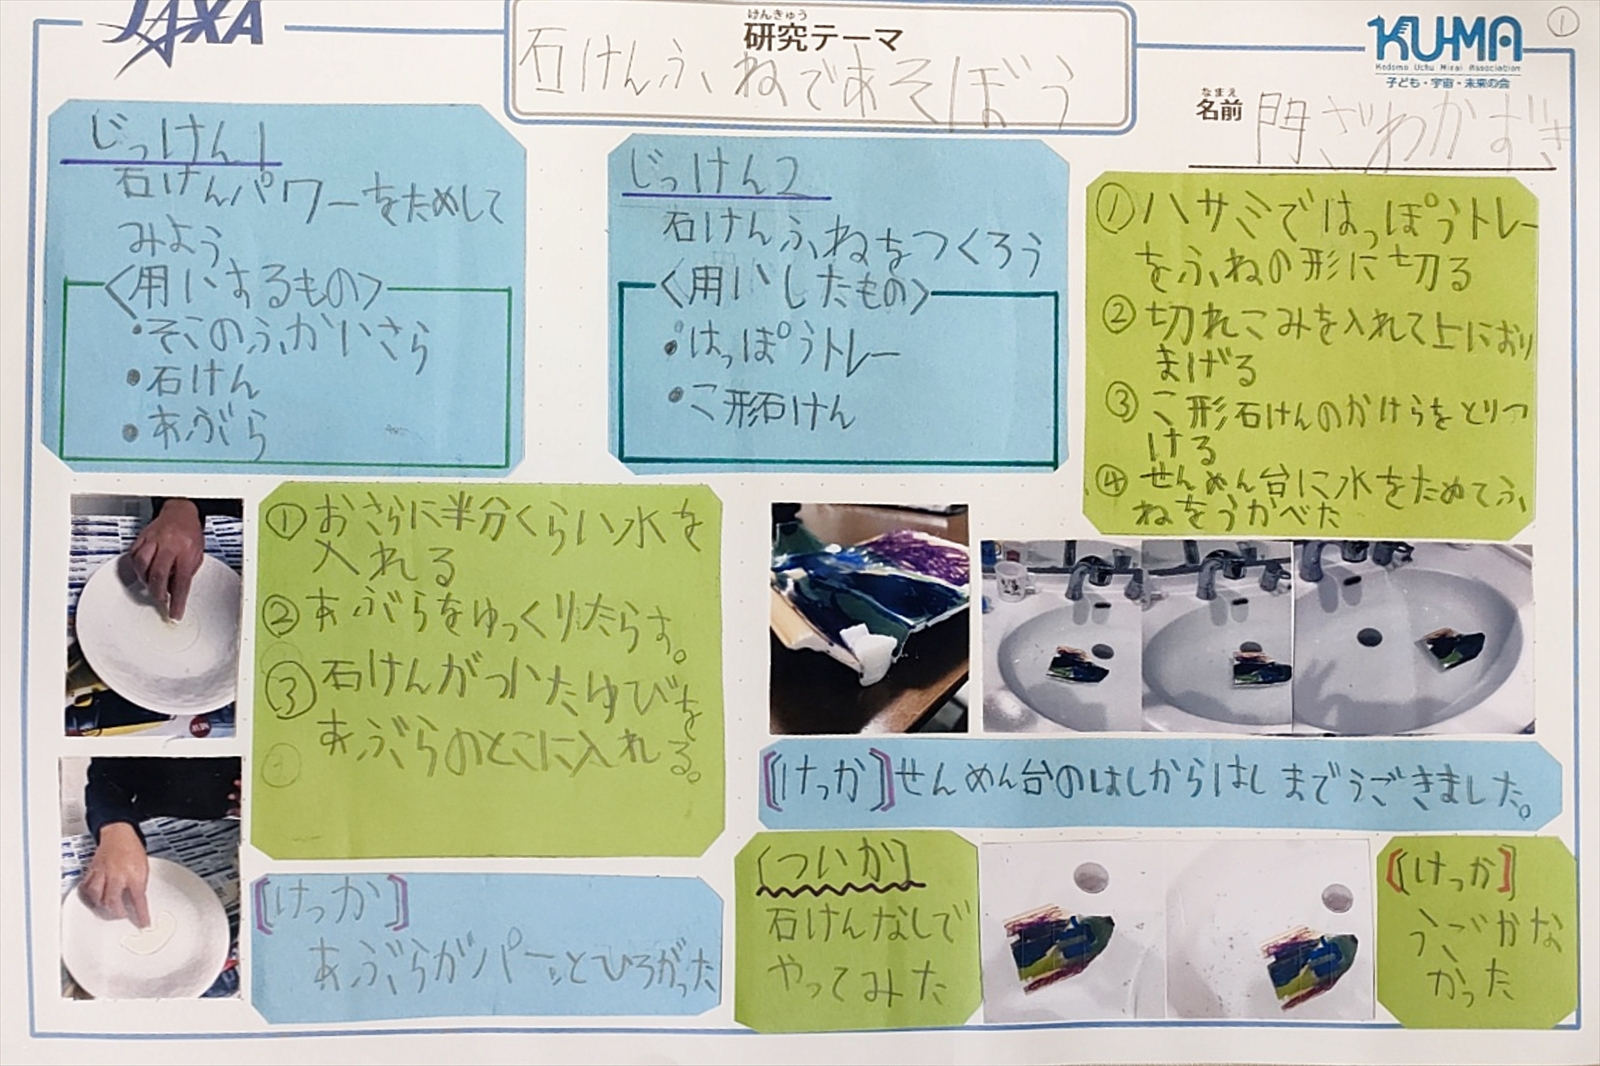 JAXA
けんきゅう
研究テーマ
石けんふねであそぼう
KU-MA
Kodomo Uchu Mirai Association
子ども・宇宙・未来の会
①
なまえ
名前 門ざわかずき
じっけん1
石けんパワーをためして
みよう
〈用いするもの〉
・そこのふかいさら
・石けん
・あぶら
①おさらに半分くらい水を
入れる
②あぶらをゆっくりたらす。
③石けんがついたゆびを
あぶらのとこに入れる。
[けっか]
あぶらがパーッとひろがった
じっけん2
石けんふねをつくろう
〈用いしたもの〉
・はっぽうトレー
・こ形石けん
①ハサミではっぽうトレー
をふねの形に切る
②切れこみを入れて上におり
まげる
③こ形石けんのかけらをとりつ
ける
④せんめん台に水をためてふ
ねをうかべた
[けっか]せんめん台のはしからはしまでうごきました。
[ついか]
石けんなしで
やってみた
[けっか]
うごかな
かった